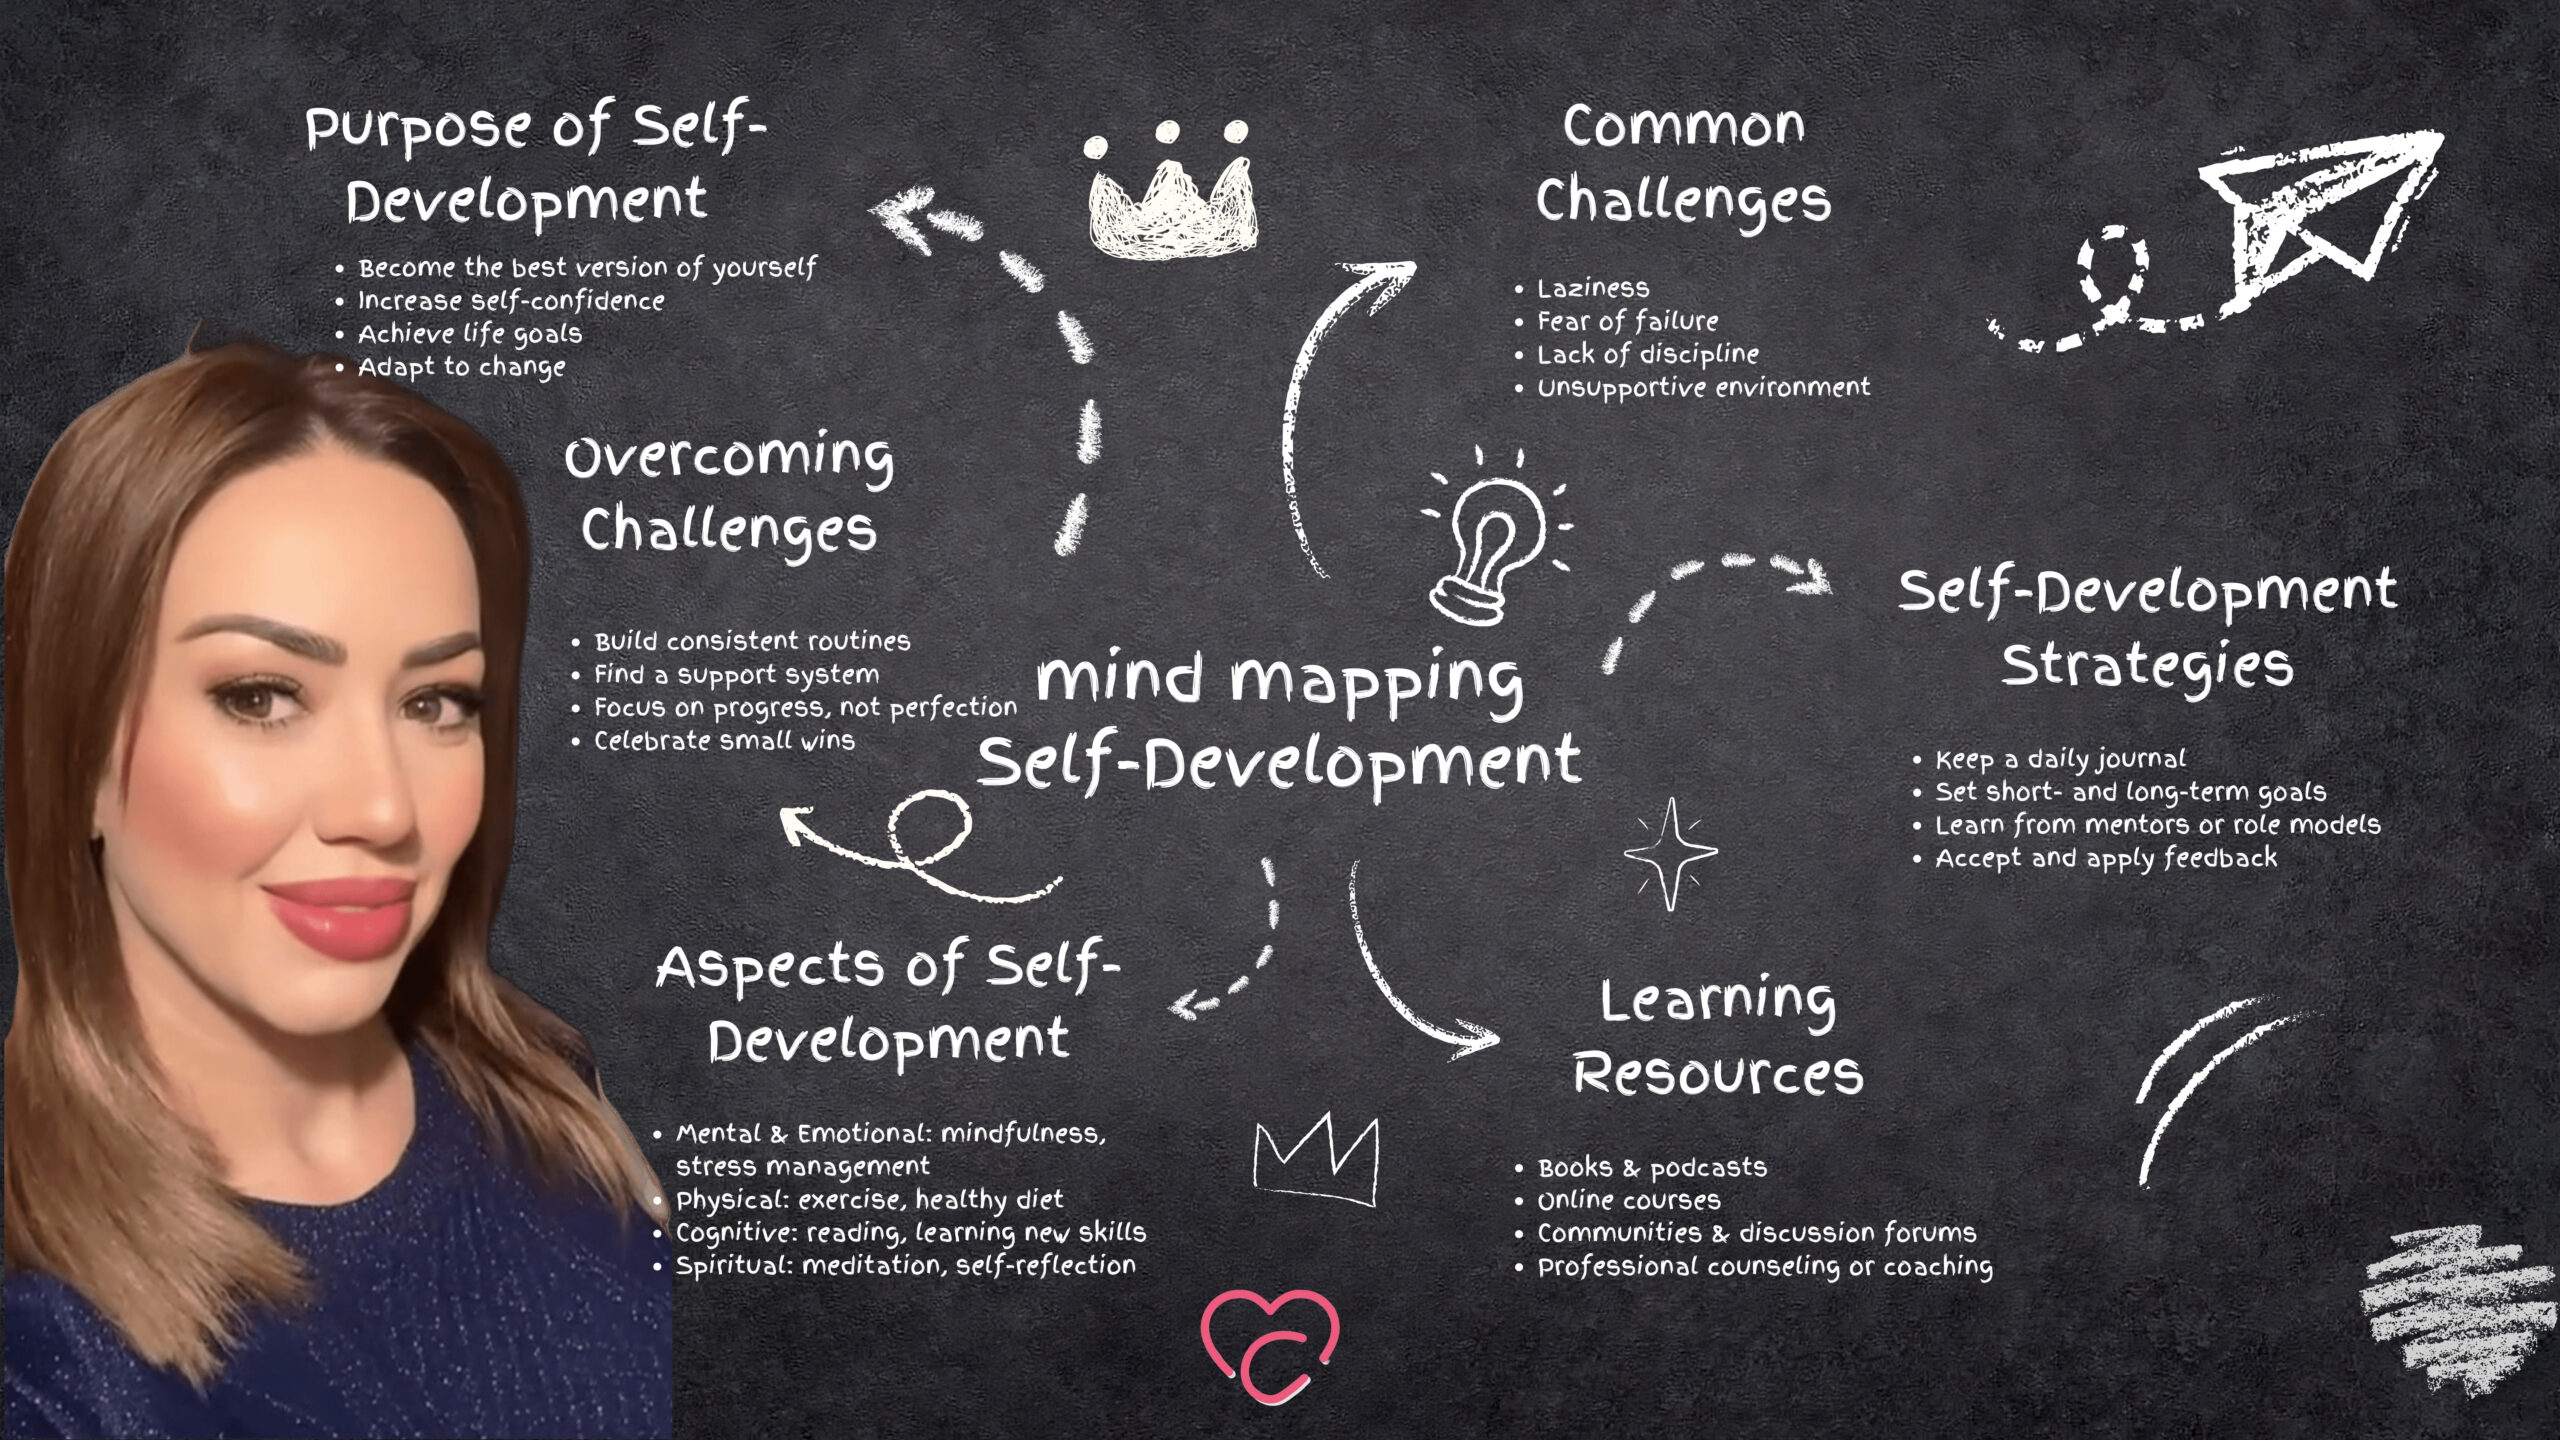 Purpose of Self-
Development
• Become the best version of yourself
• Increase self-confidence
• Achieve life goals
• Adapt to change
Common
Challenges
• Laziness
• Fear of failure
• Lack of discipline
• Unsupportive environment
Overcoming
Challenges
• Build consistent routines
• Find a support system
• Focus on progress, not perfection
• Celebrate small wins
mind mapping
Self-Development
Self-Development
Strategies
• Keep a daily journal
• Set short- and long-term goals
• Learn from mentors or role models
• Accept and apply feedback
Aspects of Self-
Development
• Mental & Emotional: mindfulness,
stress management
• Physical: exercise, healthy diet
• Cognitive: reading, learning new skills
• Spiritual: meditation, self-reflection
Learning
Resources
• Books & podcasts
• Online courses
• Communities & discussion forums
• Professional counseling or coaching